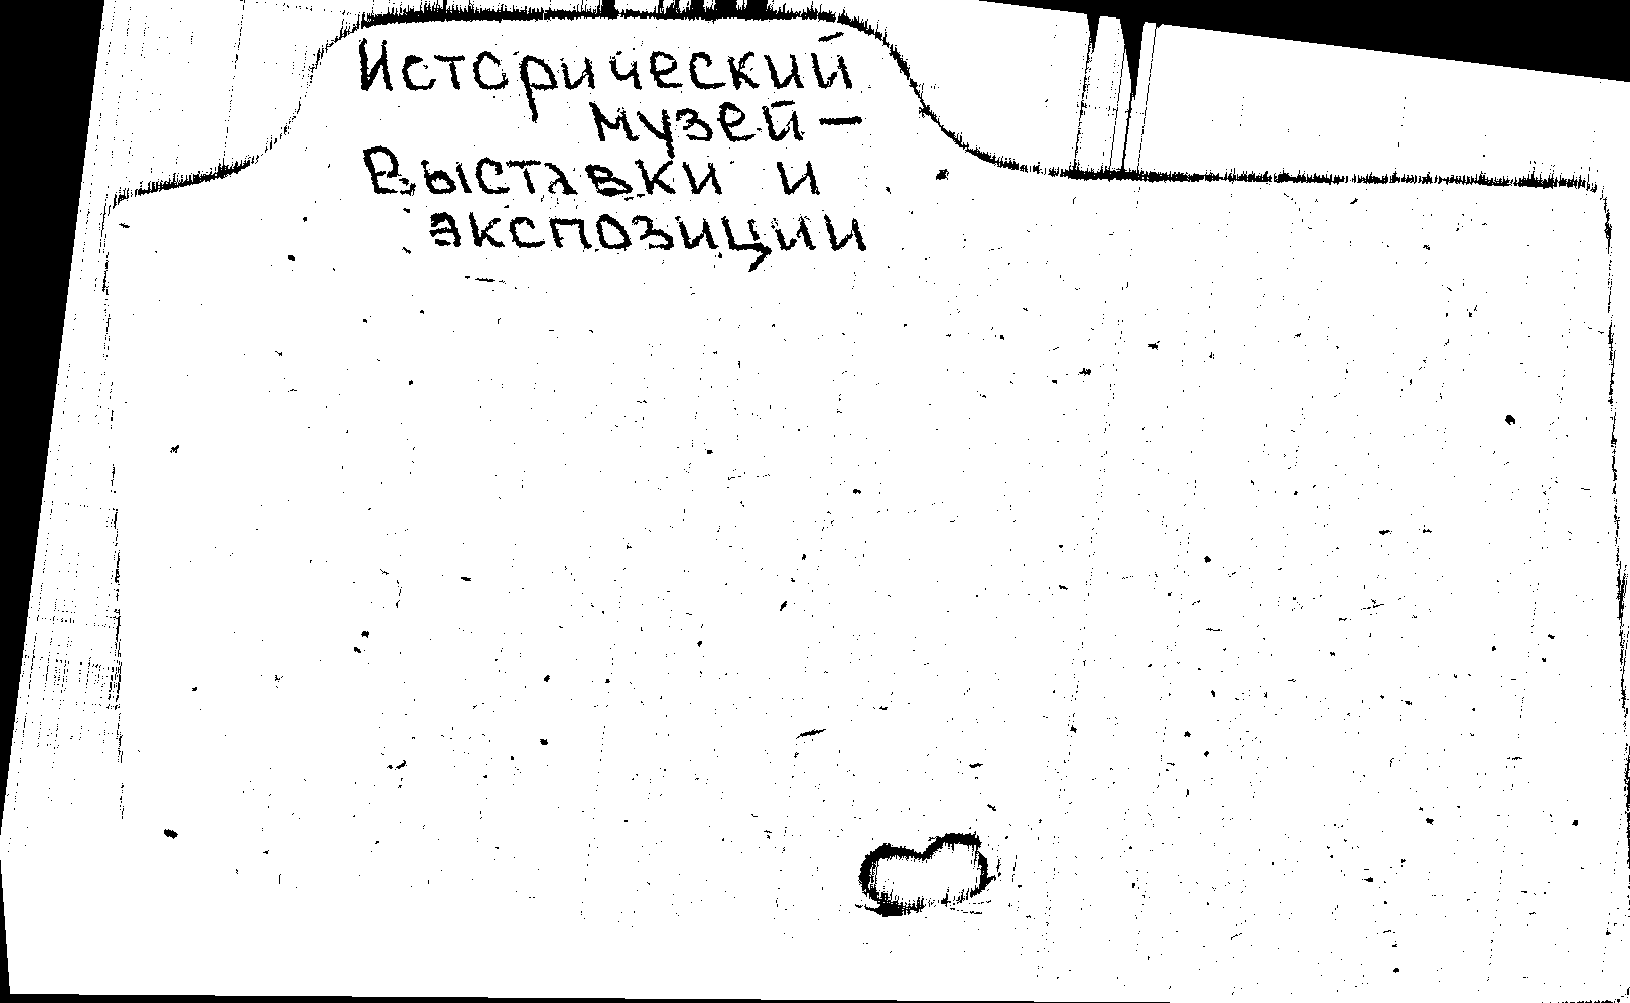 Исторический
музей –
Выставки и
экспозиции